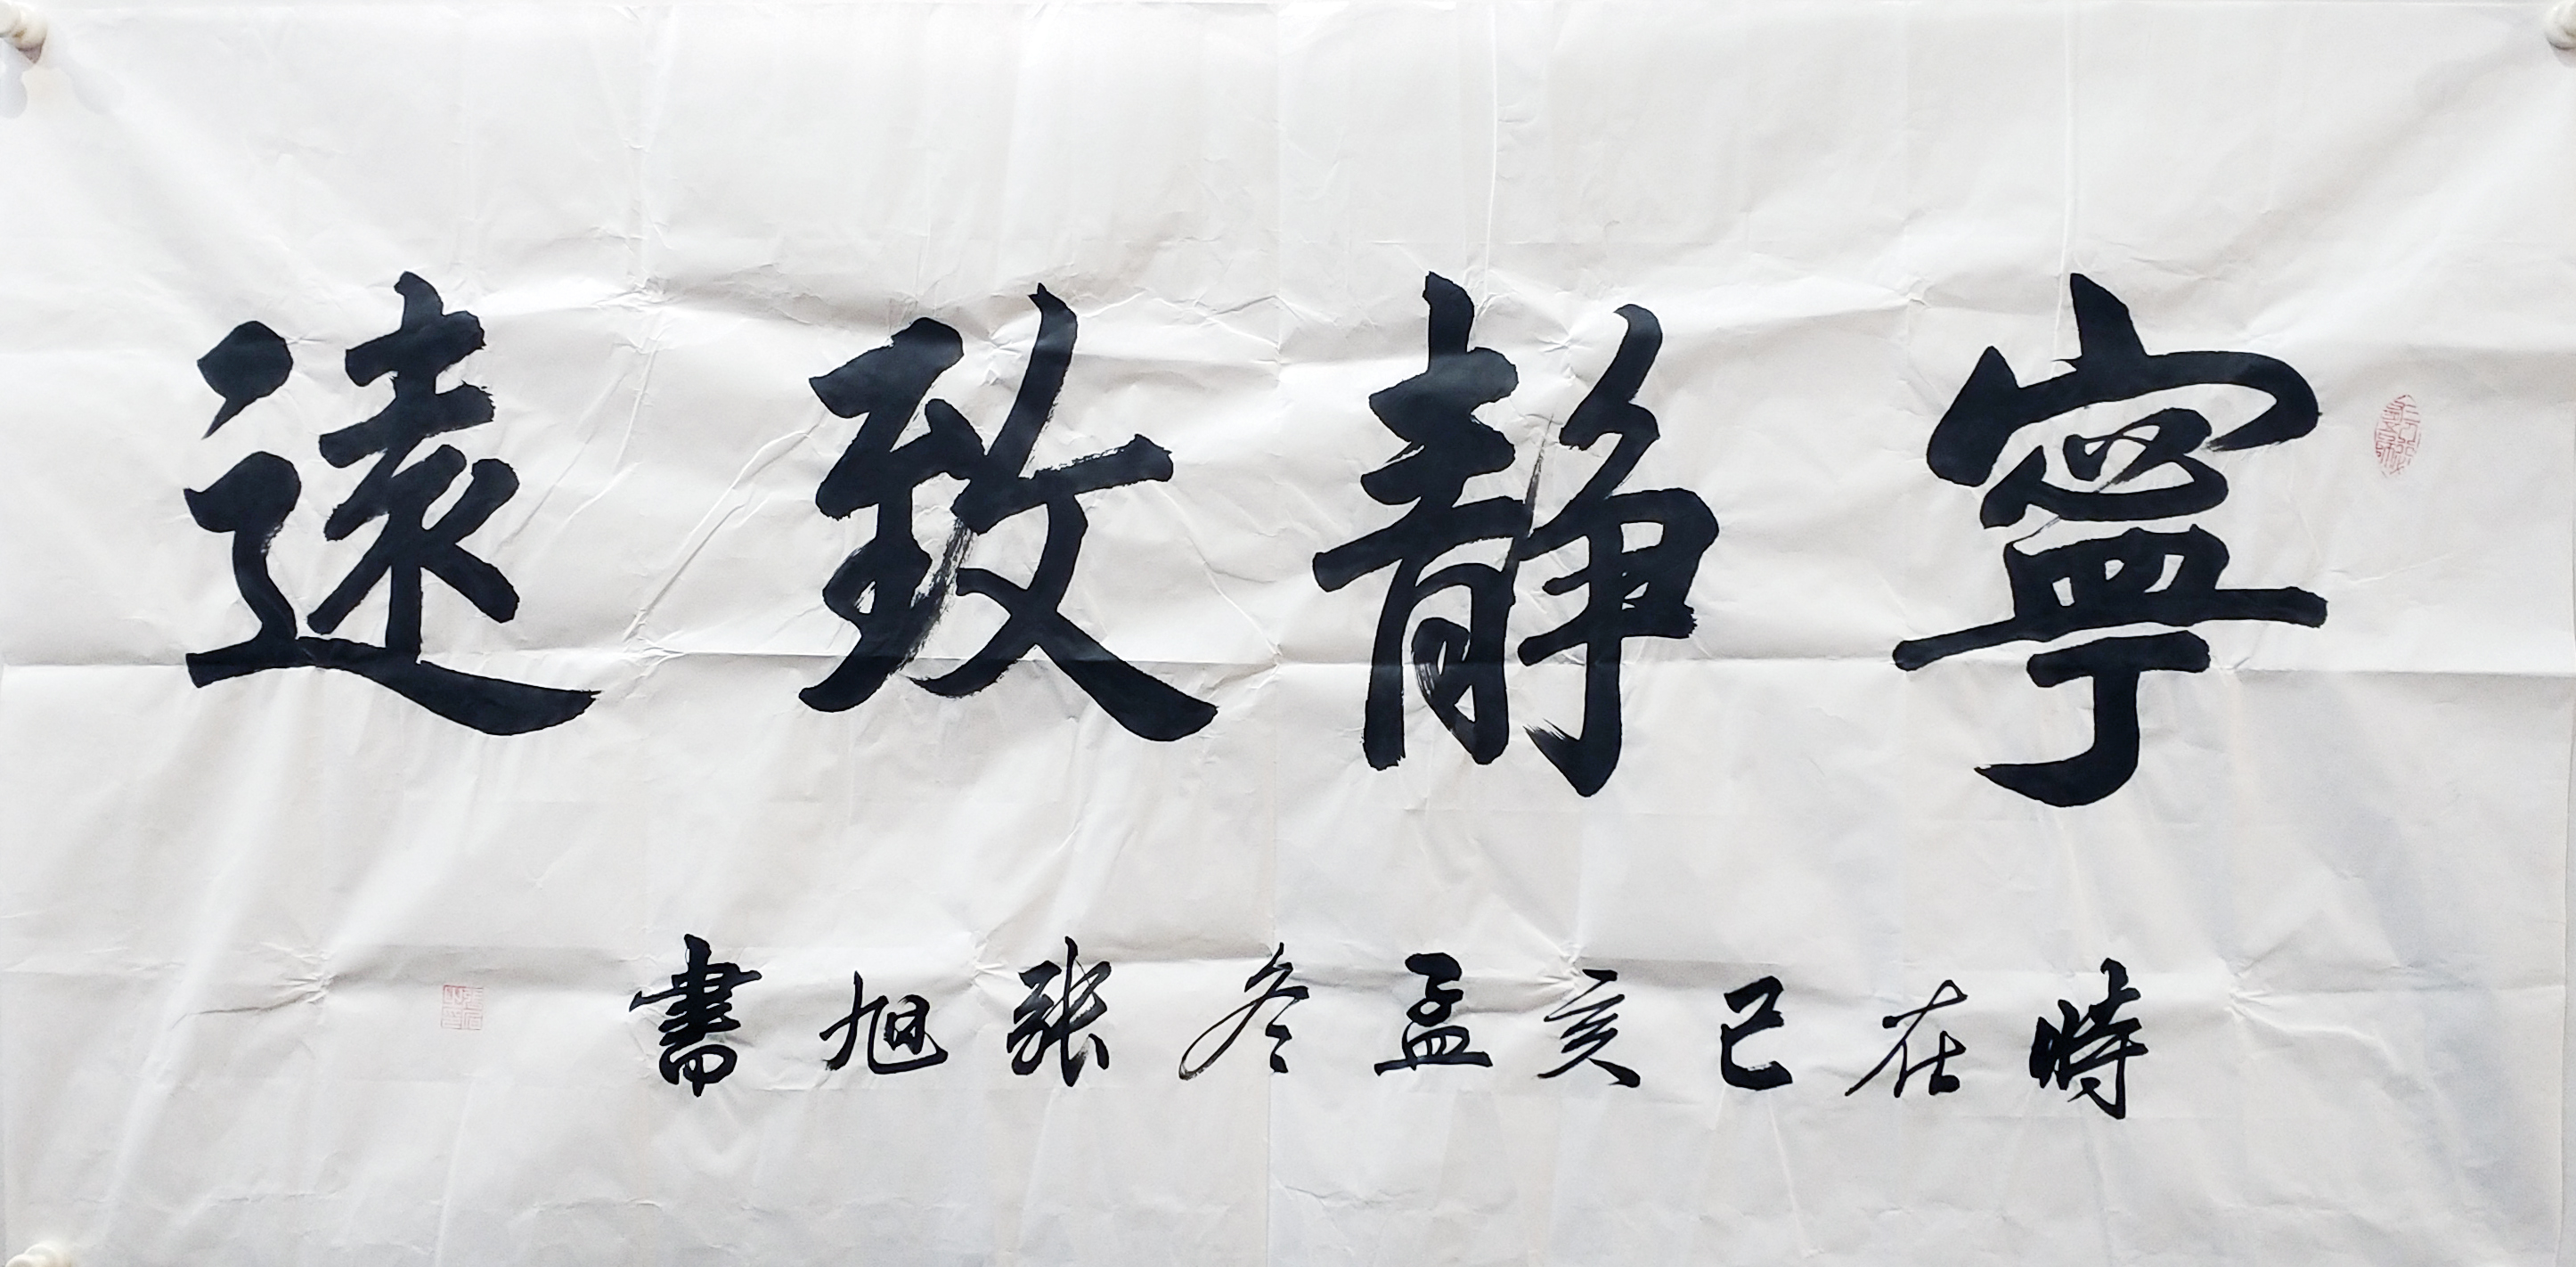 寧静致遠
時在己亥孟冬張旭書